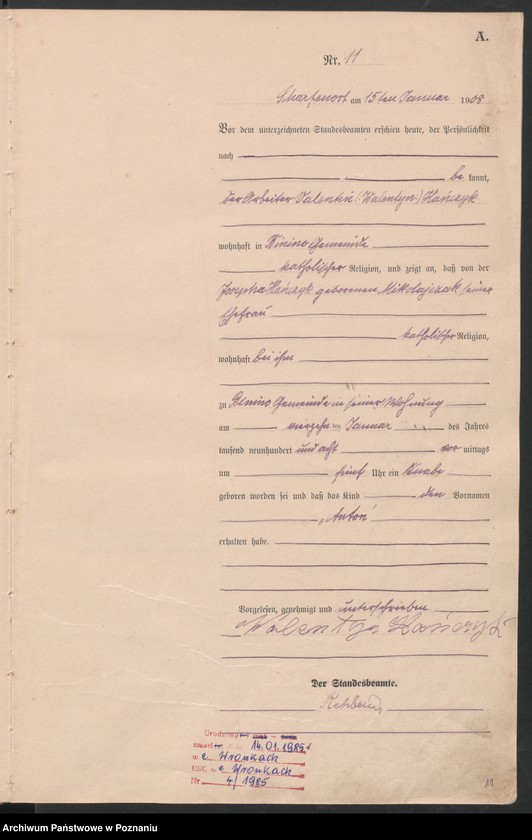 A.
Nr. 11
Scharfenort am 15ten Januar 1908
Vor dem unterzeichneten Standesbeamten erschien heute, der Persönlichkeit
nach
be kannt,
der Arbeiter Valentin (: Walentyn :) Hańczyk
wohnhaft in Binino Gemeinde
katholischer Religion, und zeigt an, daß von der
Josepha Hańczyk geborenen Mikolajczak seiner
Ehefrau
katholischer Religion,
wohnhaft bei ihm
zu Binino Gemeinde in seiner Wohnung
am vierzehn ten Januar des Jahres
tausend neunhundert und acht vor mittags
um fünf Uhr ein Knabe
geboren worden sei und daß das Kind den Vornamen
„Anton“
erhalten habe.
Vorgelesen, genehmigt und unterschrieben
Walentyn Hańczyk
Der Standesbeamte.
14.01.1985 r
w e Wronkach
USC w e Wronkach
Nr 4/1985
11
Archiwum Państwowe w Poznaniu